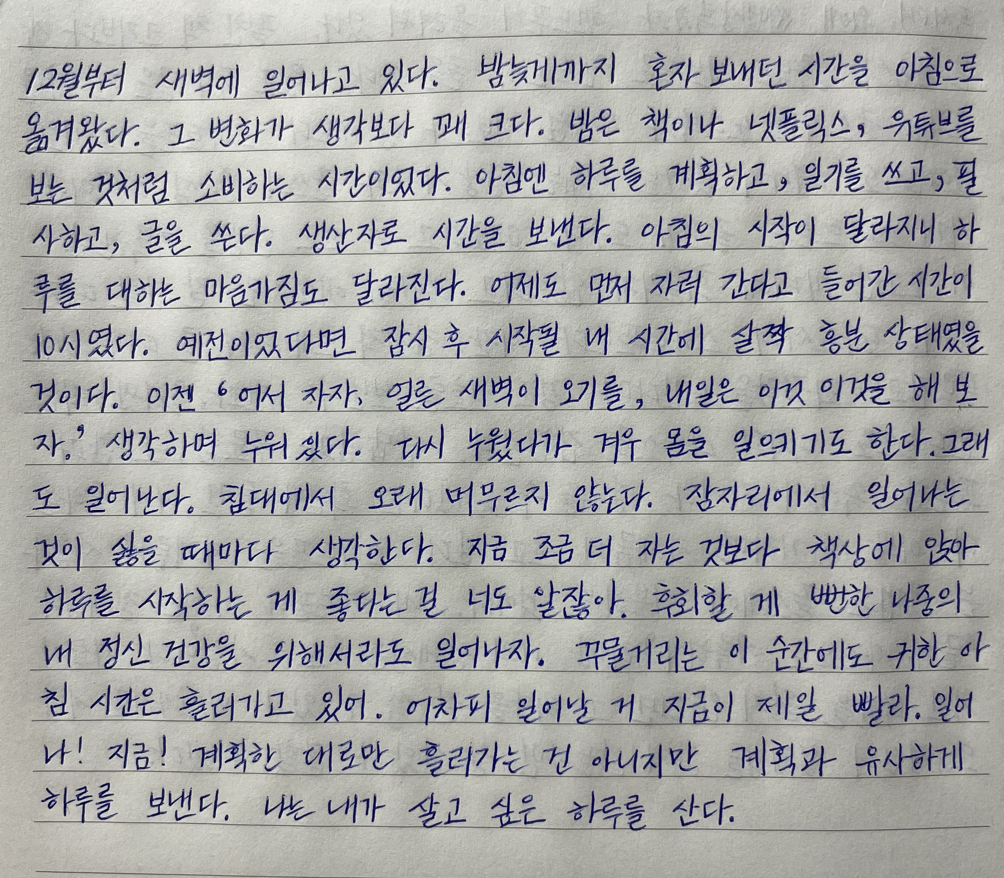 12월부터 새벽에 일어나고 있다. 밤늦게까지 혼자 보내던 시간을 아침으로
옮겨왔다. 그 변화가 생각보다 꽤 크다. 밤은 책이나 넷플릭스, 유튜브를
보는 것처럼 소비하는 시간이었다. 아침엔 하루를 계획하고, 일기를 쓰고, 필
사하고, 글을 쓴다. 생산자로 시간을 보낸다. 아침의 시작이 달라지니 하
루를 대하는 마음가짐도 달라진다. 어제도 먼저 자러 간다고 들어간 시간이
10시였다. 예전이었다면 잠시 후 시작될 내 시간에 살짝 흥분 상태였을
것이다. 이젠 '어서 자자. 얼른 새벽이 오기를, 내일은 이것 이것을 해 보
자.' 생각하며 누워있다. 다시 누웠다가 겨우 몸을 일으키기도 한다. 그래
도 일어난다. 침대에서 오래 머무르지 않는다. 잠자리에서 일어나는
것이 싫을 때마다 생각한다. 지금 조금 더 자는 것보다 책상에 앉아
하루를 시작하는 게 좋다는 걸 너도 알잖아. 후회할 게 뻔한 나중의
내 정신 건강을 위해서라도 일어나자. 꾸물거리는 이 순간에도 귀한 아
침 시간은 흘러가고 있어. 어차피 일어날 거 지금이 제일 빨라. 일어
나! 지금! 계획한 대로만 흘러가는 건 아니지만 계획과 유사하게
하루를 보낸다. 나는 내가 살고 싶은 하루를 산다.